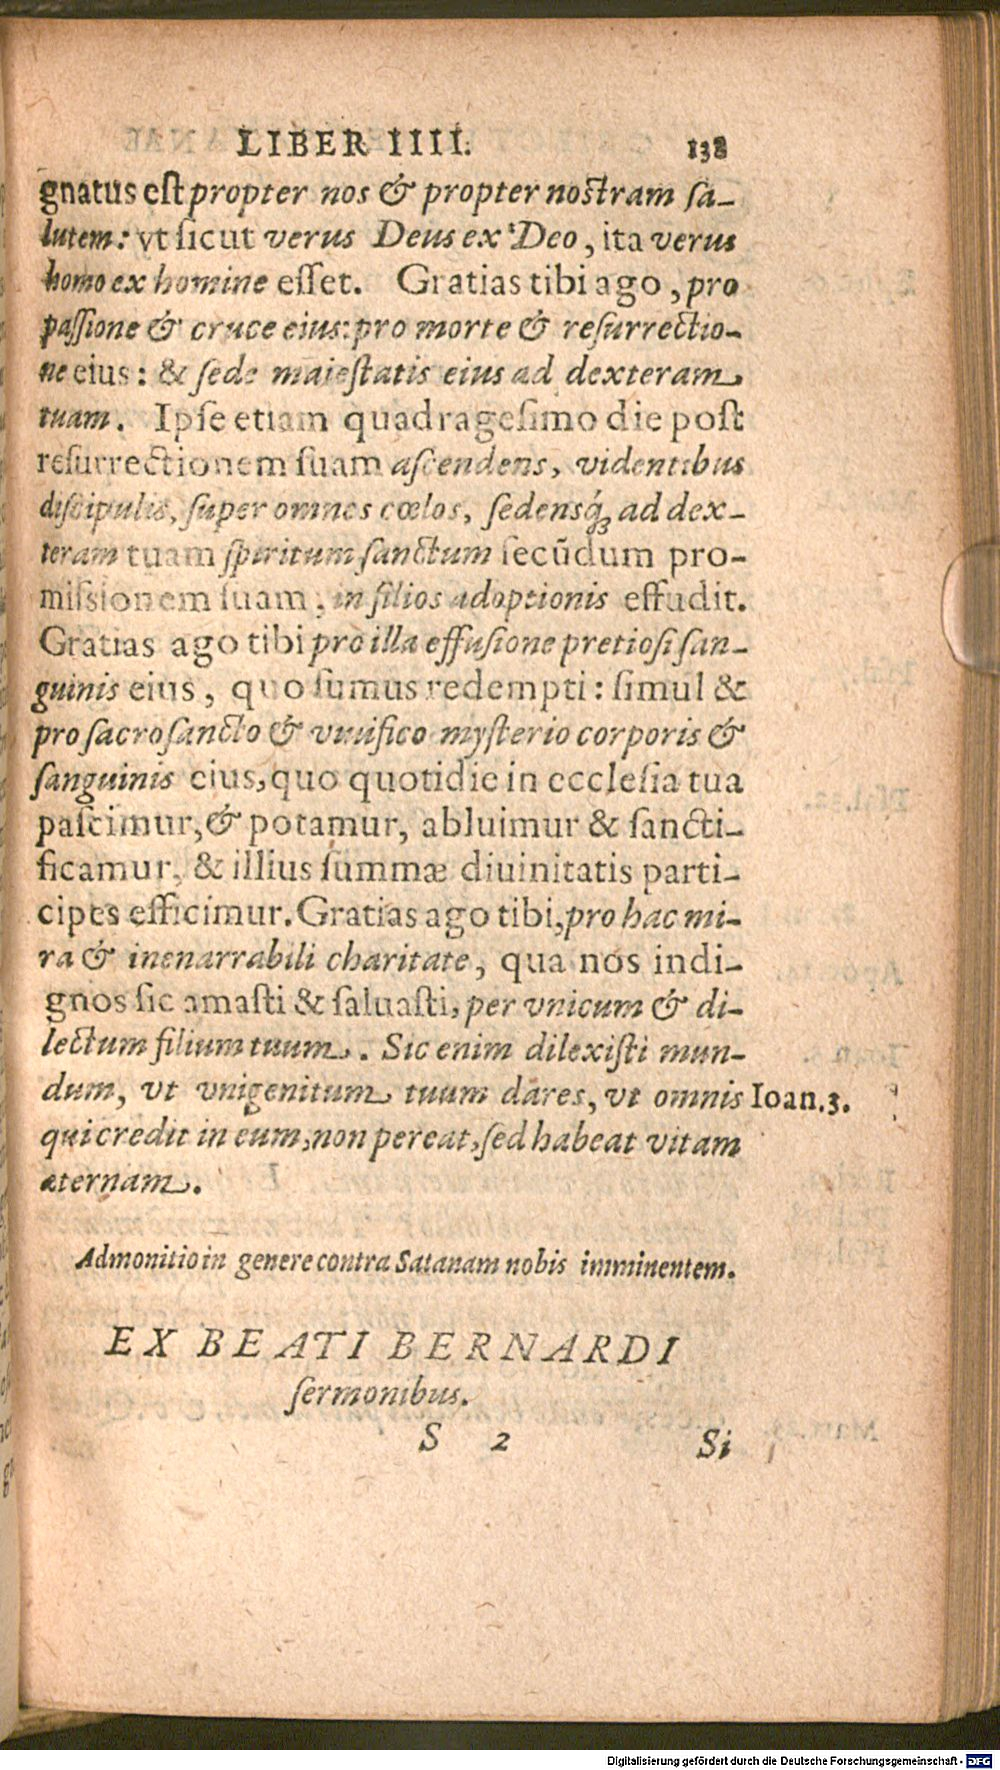 LIBER IIII. 138
gnatus est propter nos & propter nostram sa-
lutem: vt sicut verus Deus ex Deo, ita verus
homo ex homine esset. Gratias tibi ago, pro
passione & cruce eius: pro morte & resurrectio-
ne eius: & sede maiestatis eius ad dexteram
tuam. Ipse etiam quadragesimo die post
resurrectionem suam ascendens, videntibus
discipulis, super omnes cœlos, sedensq́ꝫ ad dex-
teram tuam spiritum sanctum secūdum pro-
missionem suam, in filios adoptionis effudit.
Gratias ago tibi pro illa effusione pretiosi san-
guinis eius, quo sumus redempti: simul &
pro sacrosancto & viuifico mysterio corporis &
sanguinis eius, quo quotidie in ecclesia tua
pascimur, & potamur, abluimur & sancti-
ficamur, & illius summæ diuinitatis parti-
cipes efficimur. Gratias ago tibi, pro hac mi-
ra & inenarrabili charitate, qua nos indi-
gnos sic amasti & saluasti, per vnicum & di-
lectum filium tuum. Sic enim dilexisti mun-
dum, vt vnigenitum tuum dares, vt omnis Ioan.3.
qui credit in eum, non pereat, sed habeat vitam
æternam.
Admonitio in genere contra Satanam nobis imminentem.
EX BEATI BERNARDI
sermonibus.
S 2 Si
Digitalisierung gefördert durch die Deutsche Forschungsgemeinschaft - DFG